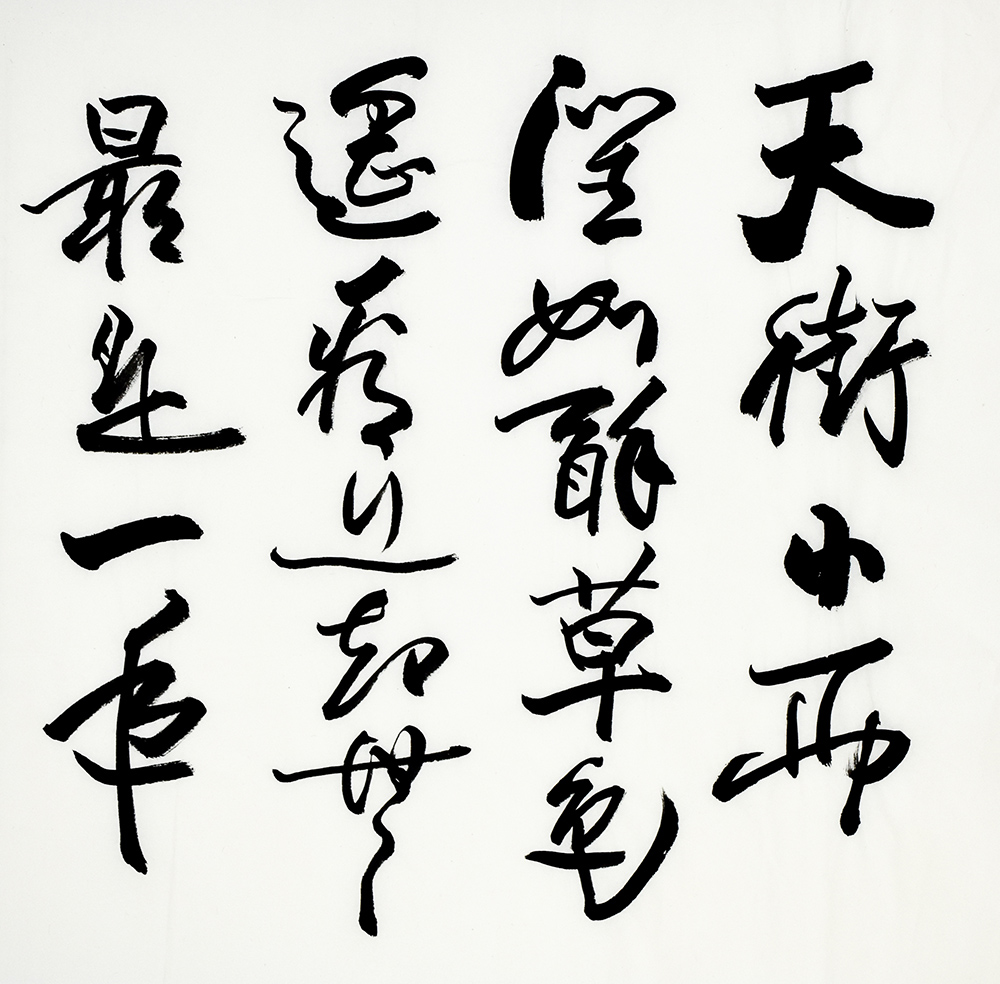 天街小雨
潤如酥草色
遙看近却無
最是一年